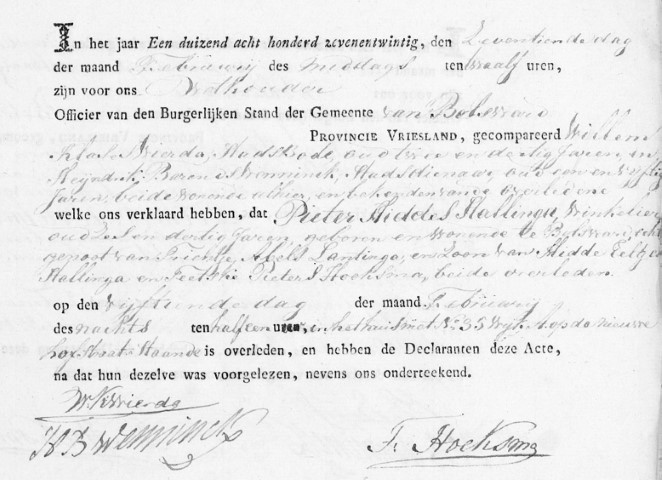 In het jaar Een duizend acht honderd zevenentwintig, den Zeventiende dag
der maand Februarij des middags ten twaalf uren,
zijn voor ons Wethouder
Officier van den Burgerlijken Stand der Gemeente van Bolsward
PROVINCIE VRIESLAND, gecompareerd Willem
Klases Wierda, Stadsbode, oud drie en dertig Jaren, en
Barends Wennink, Stadsdienaar, oud een en vijftig
Jaren, beide wonende alhier, en bekenden van de overledene
welke ons verklaard hebben, dat Pieter Hiddes Hallinga, Winkelier
oud zes en dertig Jaren, geboren en wonende te Bolsward, echt
genoot van Trichtje Lantinga, en Zoon van Hidde
Hallinga en Feetske Pieters Hoeksma, beide overleden
op den Vijftiende dag der maand Februarij
des nachts ten half een uren, in het huis met No 33 Wijk op de nieuwe
Staande is overleden, en hebben de Declaranten deze Acte,
na dat hun dezelve was voorgelezen, nevens ons onderteekend.
W K Wierda
B Wenninck
Hoeksma